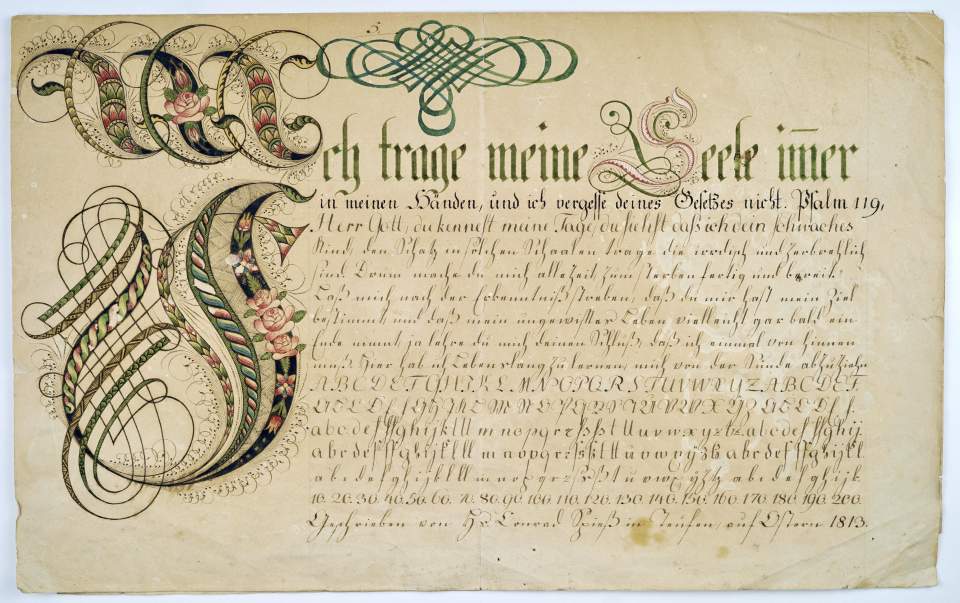 5.
Ich trage meine Seele im̄er
in meinen Händen, und ich vergesse deines Gesetzes nicht. Psalm 119,
Herr Gott, du kennest meine Tage, du siehst daß ich dein schwaches
Kind, den Schatz in solchen Schaalen trage die irrdisch und zerbrechlich
sind Drum mache du mich allezeit zum sterben fertig und bereit
Laß mich nach der Erkenntniß streben, daß du mir hast mein Ziel
bestimmt und daß mein ungewisser Leben vielleicht gar bald ein
Ende nimt, ja lehre du mich deinen Schluß, daß ich einmal von hinnen
muß. Hier hab ich Lebenslang zu lernen, mich von der Sünde abzuziehn
A B C D E F G H I K L M N O P Q R S T U V W X Y Z A B C D E F
A B C D E f G H I K L M N O P Q R S T U V W X Y Z A B C D E f.
a b c d e f ff g h i j k l ll m n o p q r s t u v w x y z tz a b c d e f ff g h i j
a b c d e f ff g h i j k l ll m n o p q r s t u v w x y z a b c d e f ff g h i j k l
a b c d e f g h i j k l ll m n o p q r s t u v w x y z tz a b c d e f g h i j k
10. 20. 30. 40. 50. 60. 70. 80. 90. 100. 110. 120. 130. 140. 150. 160. 170. 180. 190. 200.
Geschrieben von Hs Conrad Spieß in Teufen, auf Ostern 1813.